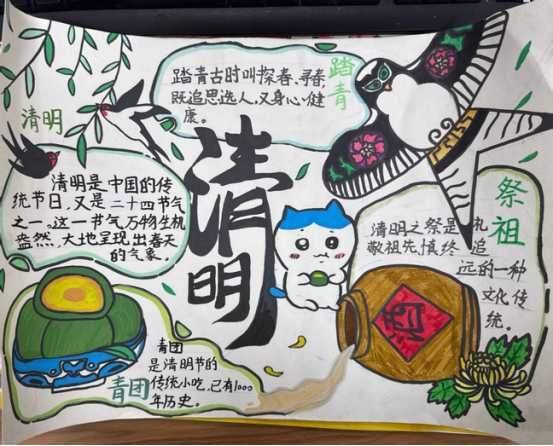 清明
清明是中国的传
统节日,又是二十四节气
之一。这一节气万物生机
盎然,大地呈现出春天
的气象。
踏青古时叫探春、寻春,
既追思选人,又身心健
康。
踏青
清明
祭祖
清明之祭是礼
敬祖先,慎终追
远的一种
文化传
统。
酒
青团
是清明节的
传统小吃,已有1000
年历史。
青团